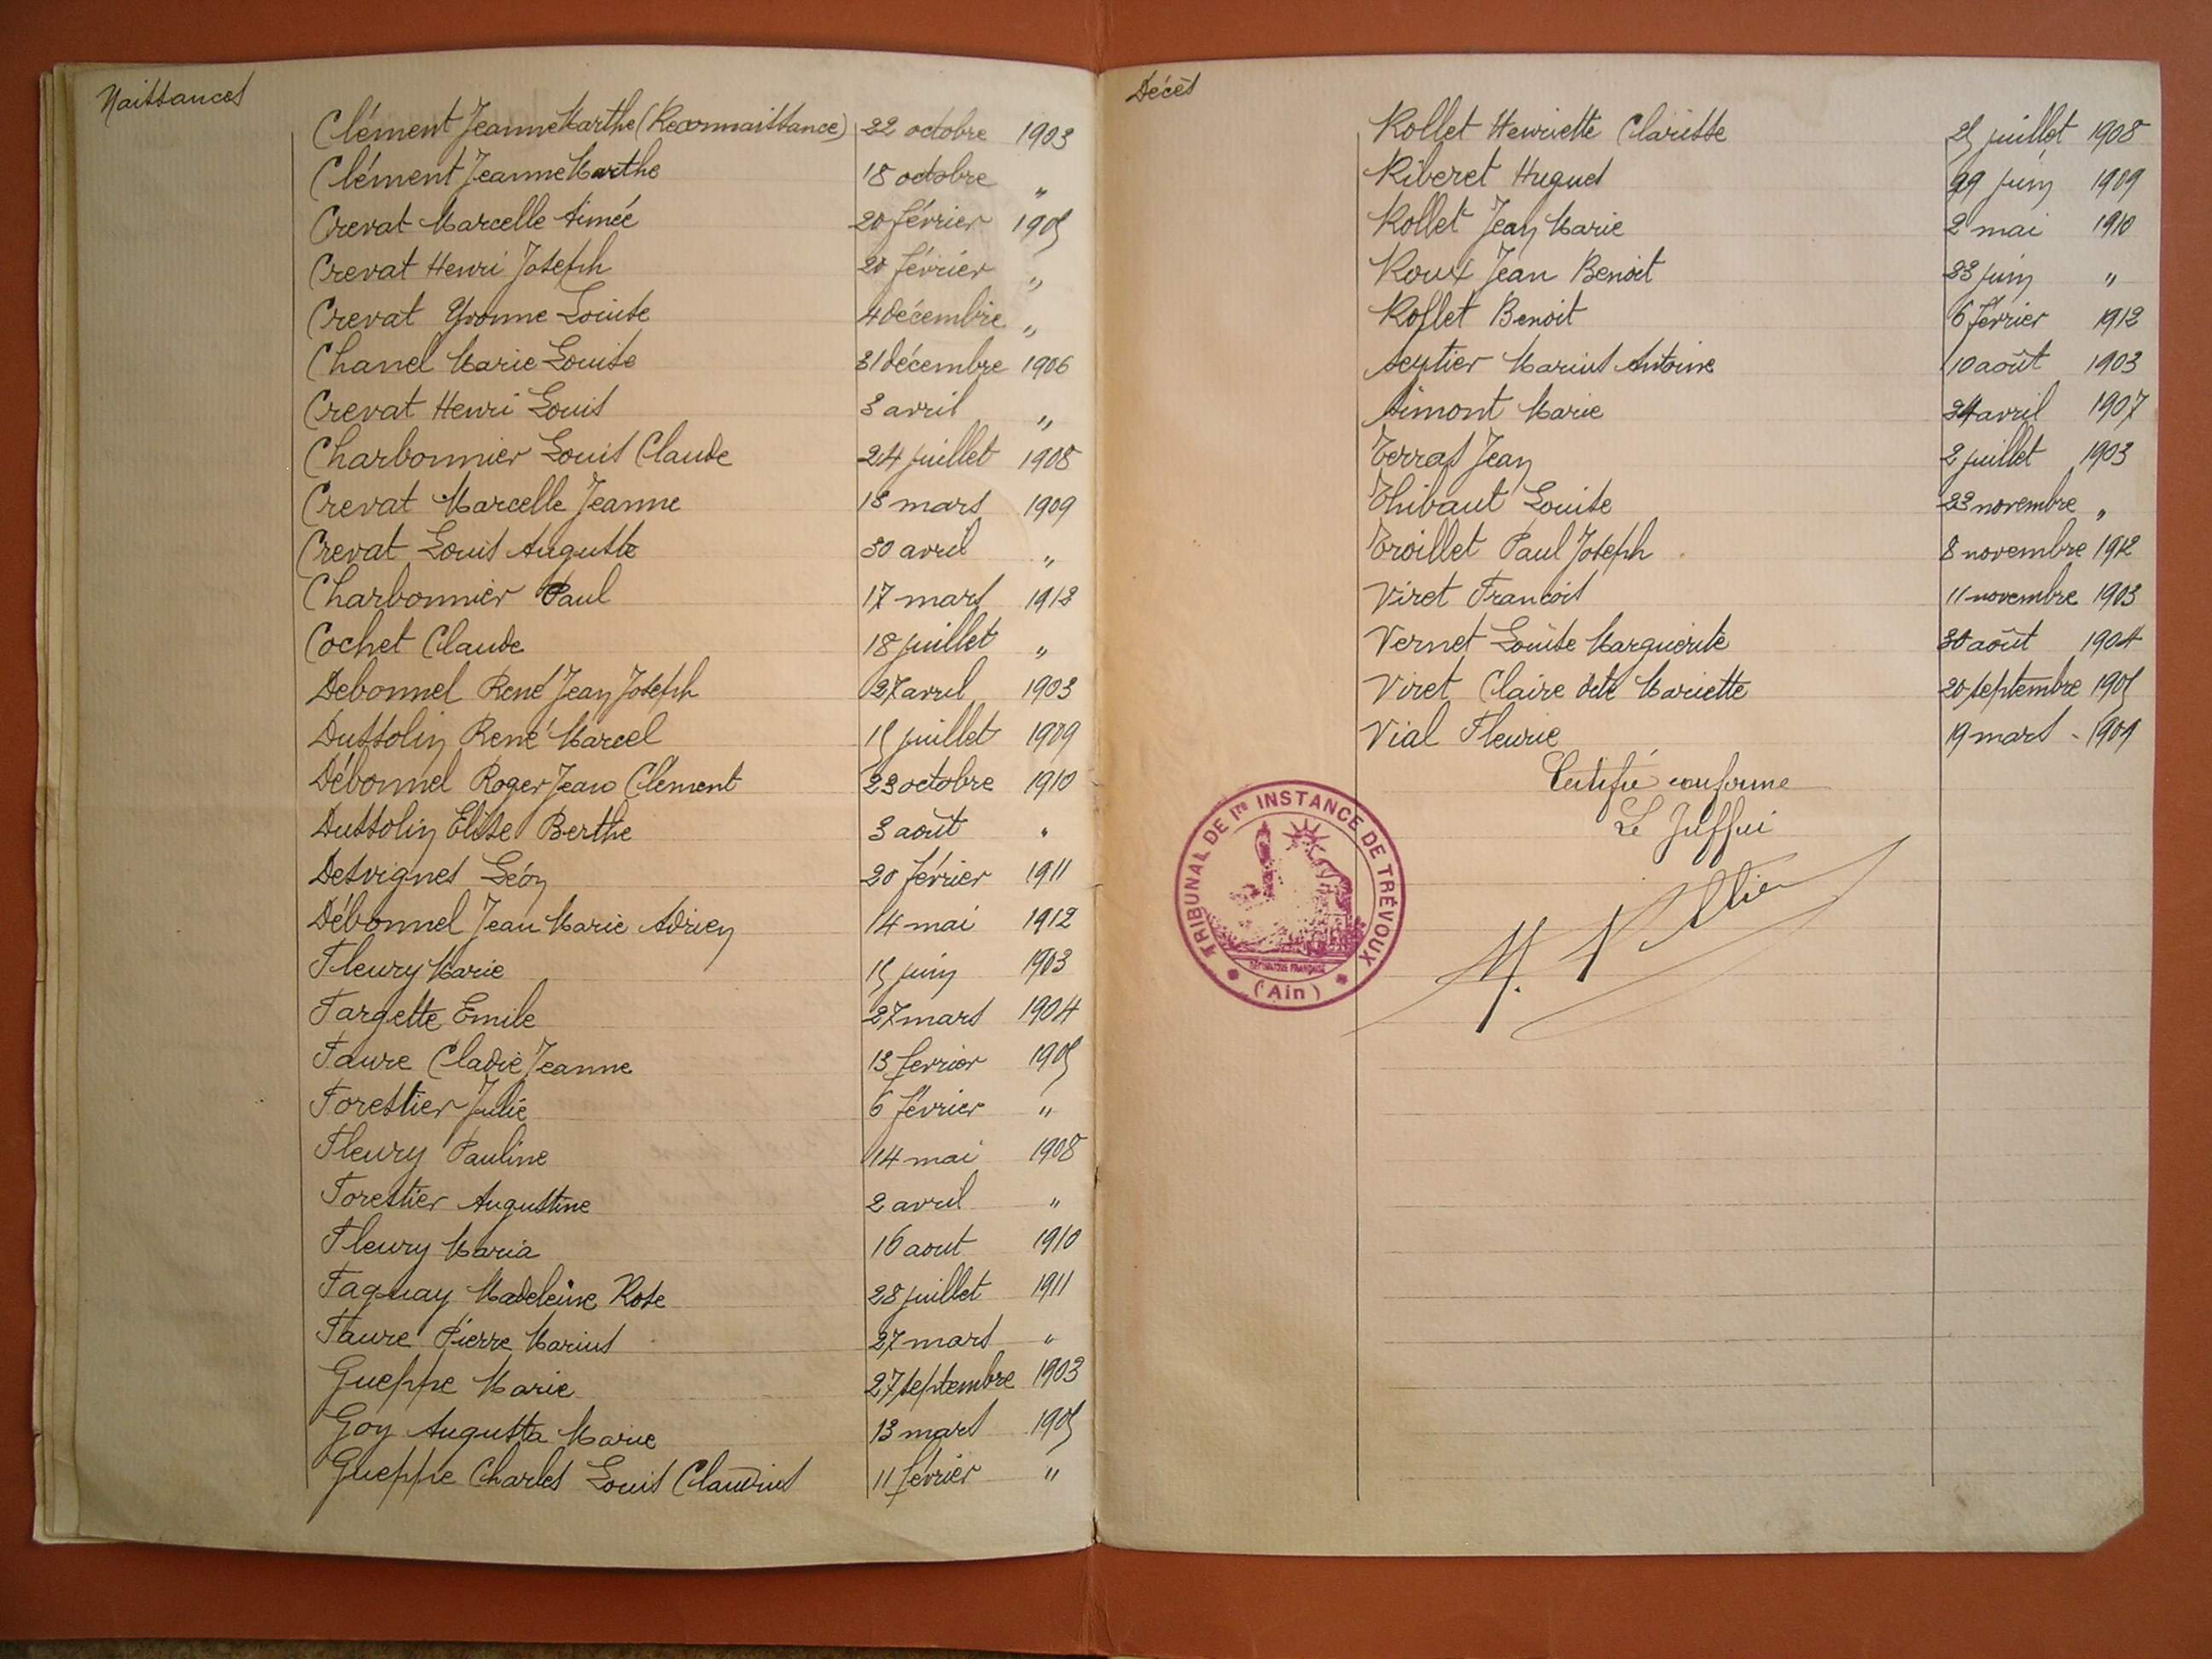 Naissances
Clément Jeanne Marthe (Reconnaissance) 22 octobre 1903
Clément Jeanne Marthe 18 octobre "
Crevat Marcelle Aimée 20 février 1905
Crevat Henri Joseph 20 février "
Crevat Yvonne Louise 4 décembre "
Chanel Marie Louise 31 décembre 1906
Crevat Henri Louis 3 avril "
Charbonnier Louis Claude 24 juillet 1908
Crevat Marcelle Jeanne 18 mars 1909
Crevat Louis Auguste 30 avril "
Charbonnier Paul 17 mars 1912
Cochet Claude 18 juillet "
Debonnel René Jean Joseph 27 avril 1903
Dussolin René Marcel 15 juillet 1909
Débonnel Roger Jean Clément 23 octobre 1910
Dussolin Elise Berthe 3 août "
Desvignes Léon 20 février 1911
Débonnel Jean Marie Adrien 14 mai 1912
Fleury Marie 15 juin 1903
Fargette Emile 27 mars 1904
Faure Cladie Jeanne 13 fevrier 1905
Forestier Julie 6 février "
Fleury Pauline 14 mai 1908
Forestier Augustine 2 avril "
Fleury Maria 16 aout 1910
Faguay Madeleine Rose 28 juillet 1911
Faure Pierre Marius 27 mars "
Gueppe Marie 27 septembre 1903
Goy Augusta Marie 13 mars 1905
Gueppe Charles Louis Claudius 11 février "
Décès
Rollet Henriette Clarisse 25 juillet 1908
Riberet Hugues juin 1909
Rollet Jean Marie 2 mai 1910
Roux Jean Benoit 23 juin "
Rollet Benoit 6 février 1912
Seytier Marius Antoine 10 août 1903
Simont Marie 24 avril 1907
Terras Jean 2 juillet 1903
Thibaut Louise 23 novembre "
Troillet Paul Joseph 8 novembre 1912
Viret François 11 novembre 1903
Vernet Louise Marguerite 30 août 1904
Viret Claire dite Mariette 20 septembre 1905
Vial Fleurie 19 mars - 1909
Certifié conforme
Le Greffier
TRIBUNAL DE 1re INSTANCE DE TRÉVOUX
RÉPUBLIQUE FRANÇAISE
(Ain)